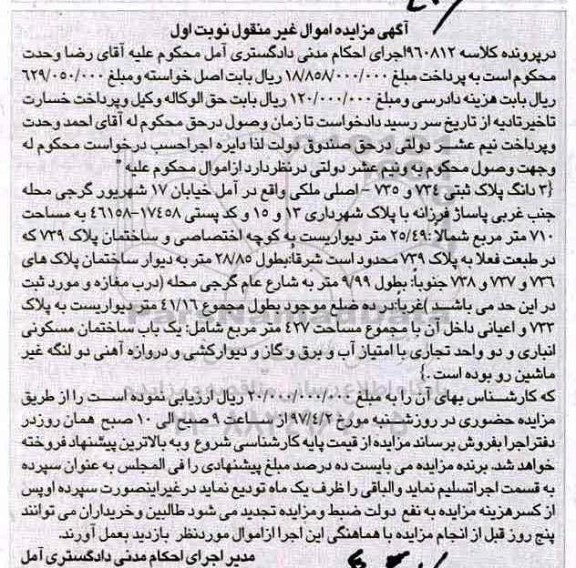 آگهی مزایده اموال غیر منقول نوبت اول
در پرونده کلاسه ۹۶۰۸۱۲اجرای احکام مدنی دادگستری آمل محکوم علیه آقای رضا وحدت
محکوم است به پرداخت مبلغ ۱۸/۸۵۸/۰۰۰/۰۰۰ ریال بابت اصل خواسته ومبلغ ۶۲۹/۰۵۰/۰۰۰
ریال بابت هزینه دادرسی ومبلغ ۱۲۰/۰۰۰/۰۰۰ ریال بابت حق الوکاله وکیل وپرداخت خسارت
تاخیرتادیه از تاریخ سر رسید دادخواست تا زمان وصول درحق محکوم له آقای احمد وحدت
وپرداخت نیم عشر دولتی درحق صندوق دولت لذا دایره اجراحسب درخواست محکوم له
وجهت وصول محکوم به ونیم عشر دولتی درنظردارد ازاموال محکوم علیه
{۳ دانگ پلاک ثبتی ۷۳۴ و ۷۳۵ - اصلی ملکی واقع در آمل خیابان ۱۷ شهریور گرجی محله
جنب غربی پاساژ فرزانه با پلاک شهرداری ۱۳ و ۱۵ و کد پستی ۱۷۴۵۸-۴۶۱۵۸ به مساحت
۷۱۰ متر مربع شمالاً :۲۵/۴۹ متر دیواریست به کوچه اختصاصی و ساختمان پلاک ۷۳۹ که
در طبعت فعلا به پلاک ۷۳۹ محدود است شرقاً:بطول ۲۸/۸۵ متر به دیوار ساختمان پلاک های
۷۳۶ و ۷۳۷ و ۷۳۸ جنوباً: بطول ۹/۹۹ متر به شارع عام گرجی محله (درب مغازه و مورد ثبت
در این حد می باشد )غربا:در ده ضلع برجود بطول مجموع ۴۱/۱۶ متر دیواریست به پلاک
۷۳۳ و اعیانی داخل آن با مجموع مساحت ۴۲۷ متر مربع شامل: یک باب ساختمان مسکونی
انباری و دو واحد تجاری با امتیاز آب و برق و گاز و دیوارکشی و دروازه آهنی دو لنگه غیر
ماشین رو بوده است .}
که کارشناس بهای آن را به مبلغ ۲۰/۰۰۰/۰۰۰/۰۰۰ ریال ارزیابی نموده است را از طریق
مزایده حضوری در روز شنبه مورخ ۹۷/۴/۲ از ساعت ۹ صبح الی ۱۰ صبح همان روز در
دفتر اجرا بفروش برساند مزایده از قیمت پایه کارشناسی شروع وبه بالاترین پیشنهاد فروخته
خواهد شد. برنده مزایده می بایست ده درصد مبلغ پیشنهادی را فی المجلس به عنوان سپرده
به قسمت اجراتسلیم نماید والباقی را ظرف یک ماه تودیع نماید درغیراینصورت سپرده اوپس
از کسرهزینه مزایده به نفع دولت ضبط ومزایده تجدید می شود طالبین وخریداران می توانند
پنج روز قبل از انجام مزایده با هماهنگی این اجرا ازاموال موردنظر بازدید بعمل آورند.
مدیر اجرای احکام مدنی دادگستری آمل